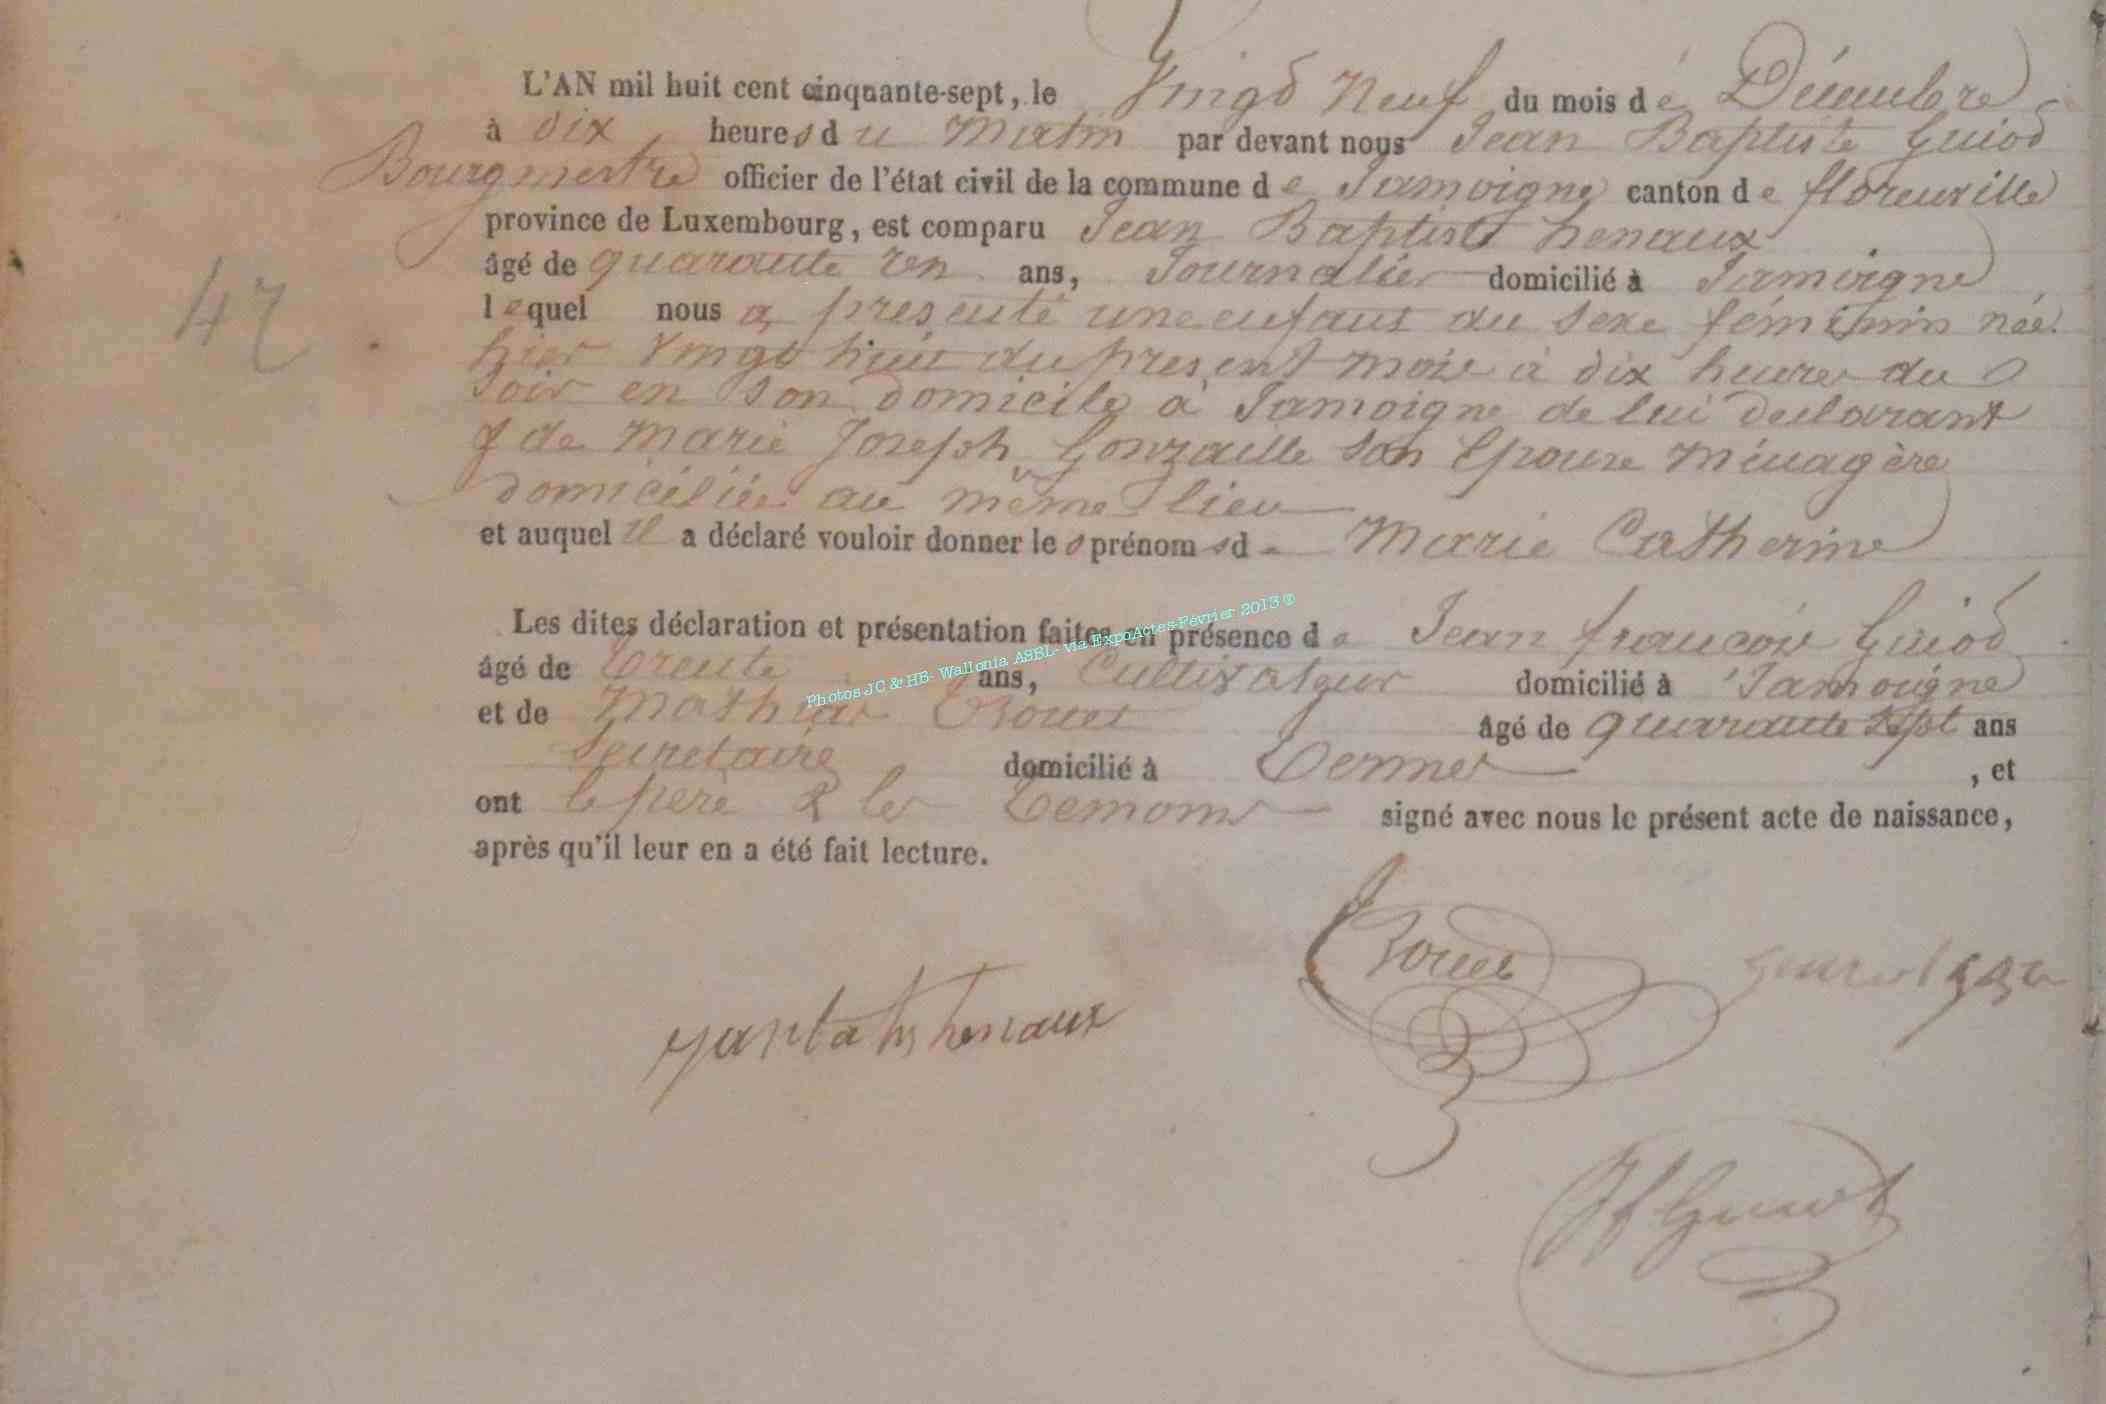 L'AN mil huit cent cinquante-sept, le Vingt Neuf du mois de Décembre
à dix heures du Matin par devant nous Jean Baptiste Guiot
Bourgmestre officier de l'état civil de la commune de Jamoigne canton de florenville
province de Luxembourg, est comparu Jean Baptiste henaux
âgé de quarante ans, Journalier domicilié à Jamoigne
lequel nous a presenté une enfant du sexe féminin née
hier vingt huit du present mois à dix heures du
soir en son domicile à Jamoigne de lui declarant
& de Marie Joseph Gonzaille son Epouse Ménagère
domiciliée au même lieu
47
et auquel il a déclaré vouloir donner les prénoms de Marie Catherine
Les dites déclaration et présentation faites en présence de Jean françois Guiot
âgé de trente ans, Cultivateur domicilié à Jamoigne
et de Mathias Rouet âgé de quarante sept ans
Secretaire domicilié à Termes, et
ont le père & les temoins signé avec nous le présent acte de naissance,
après qu'il leur en a été fait lecture.
Photos JC & HB- Wallonia ASBL- via ExpoActes-Février 2013 ®
Rouet
henaux
JfGuiot